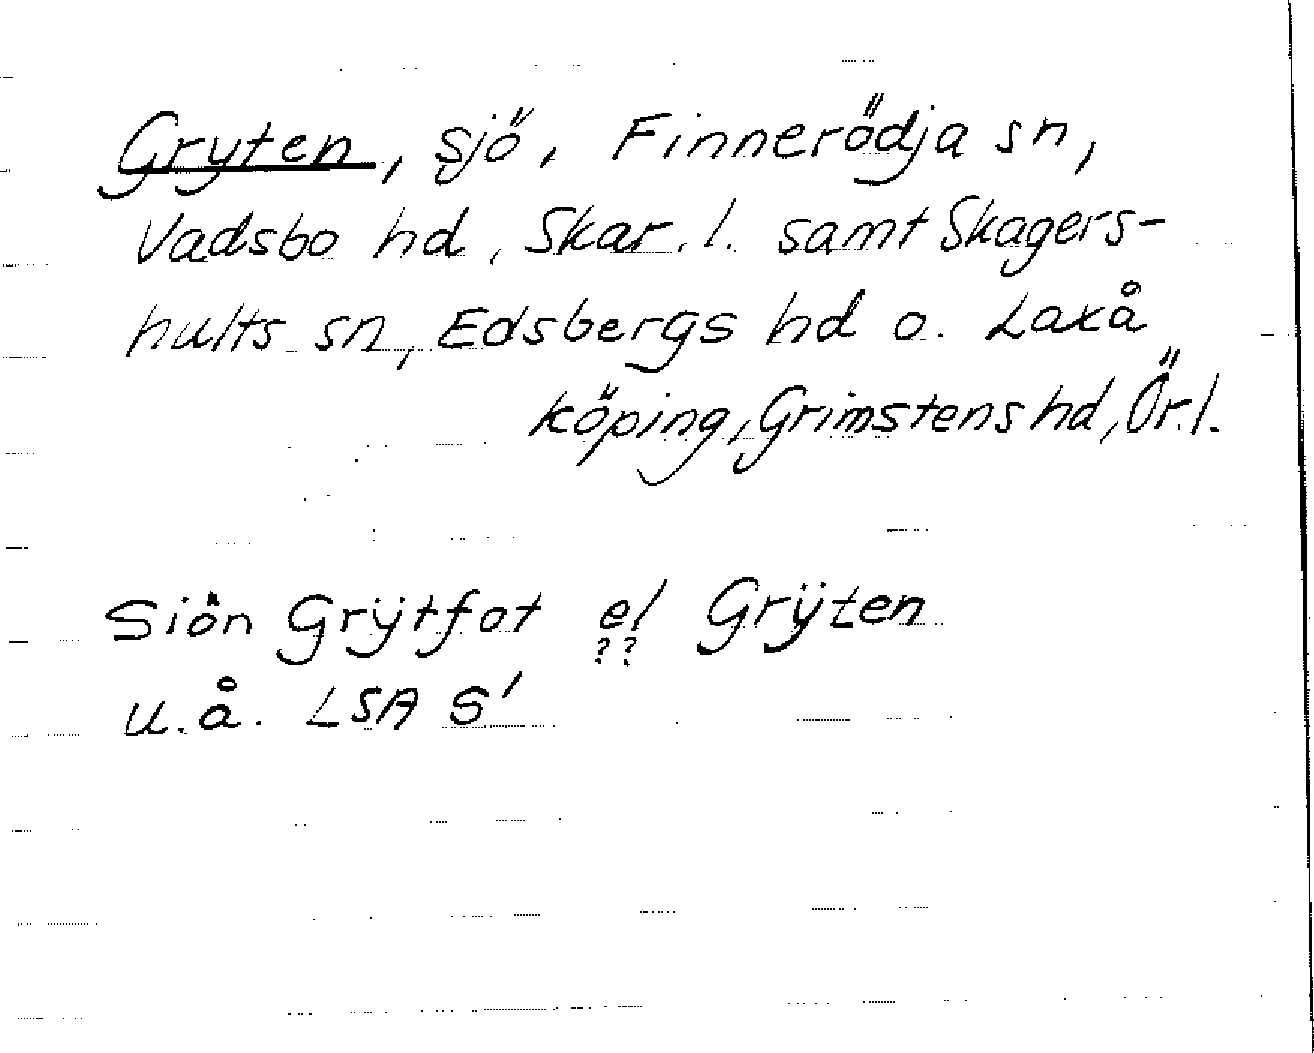 Gryten, sjö, Finnerödja sn,
Vadsbo hd, Skar. l. samt Skagers-
hults sn, Edsbergs hd o. Laxå
köping, Grimstens hd, Ör. l.
Siön Grÿtfot el Grÿten
??
u.å. LSA S'